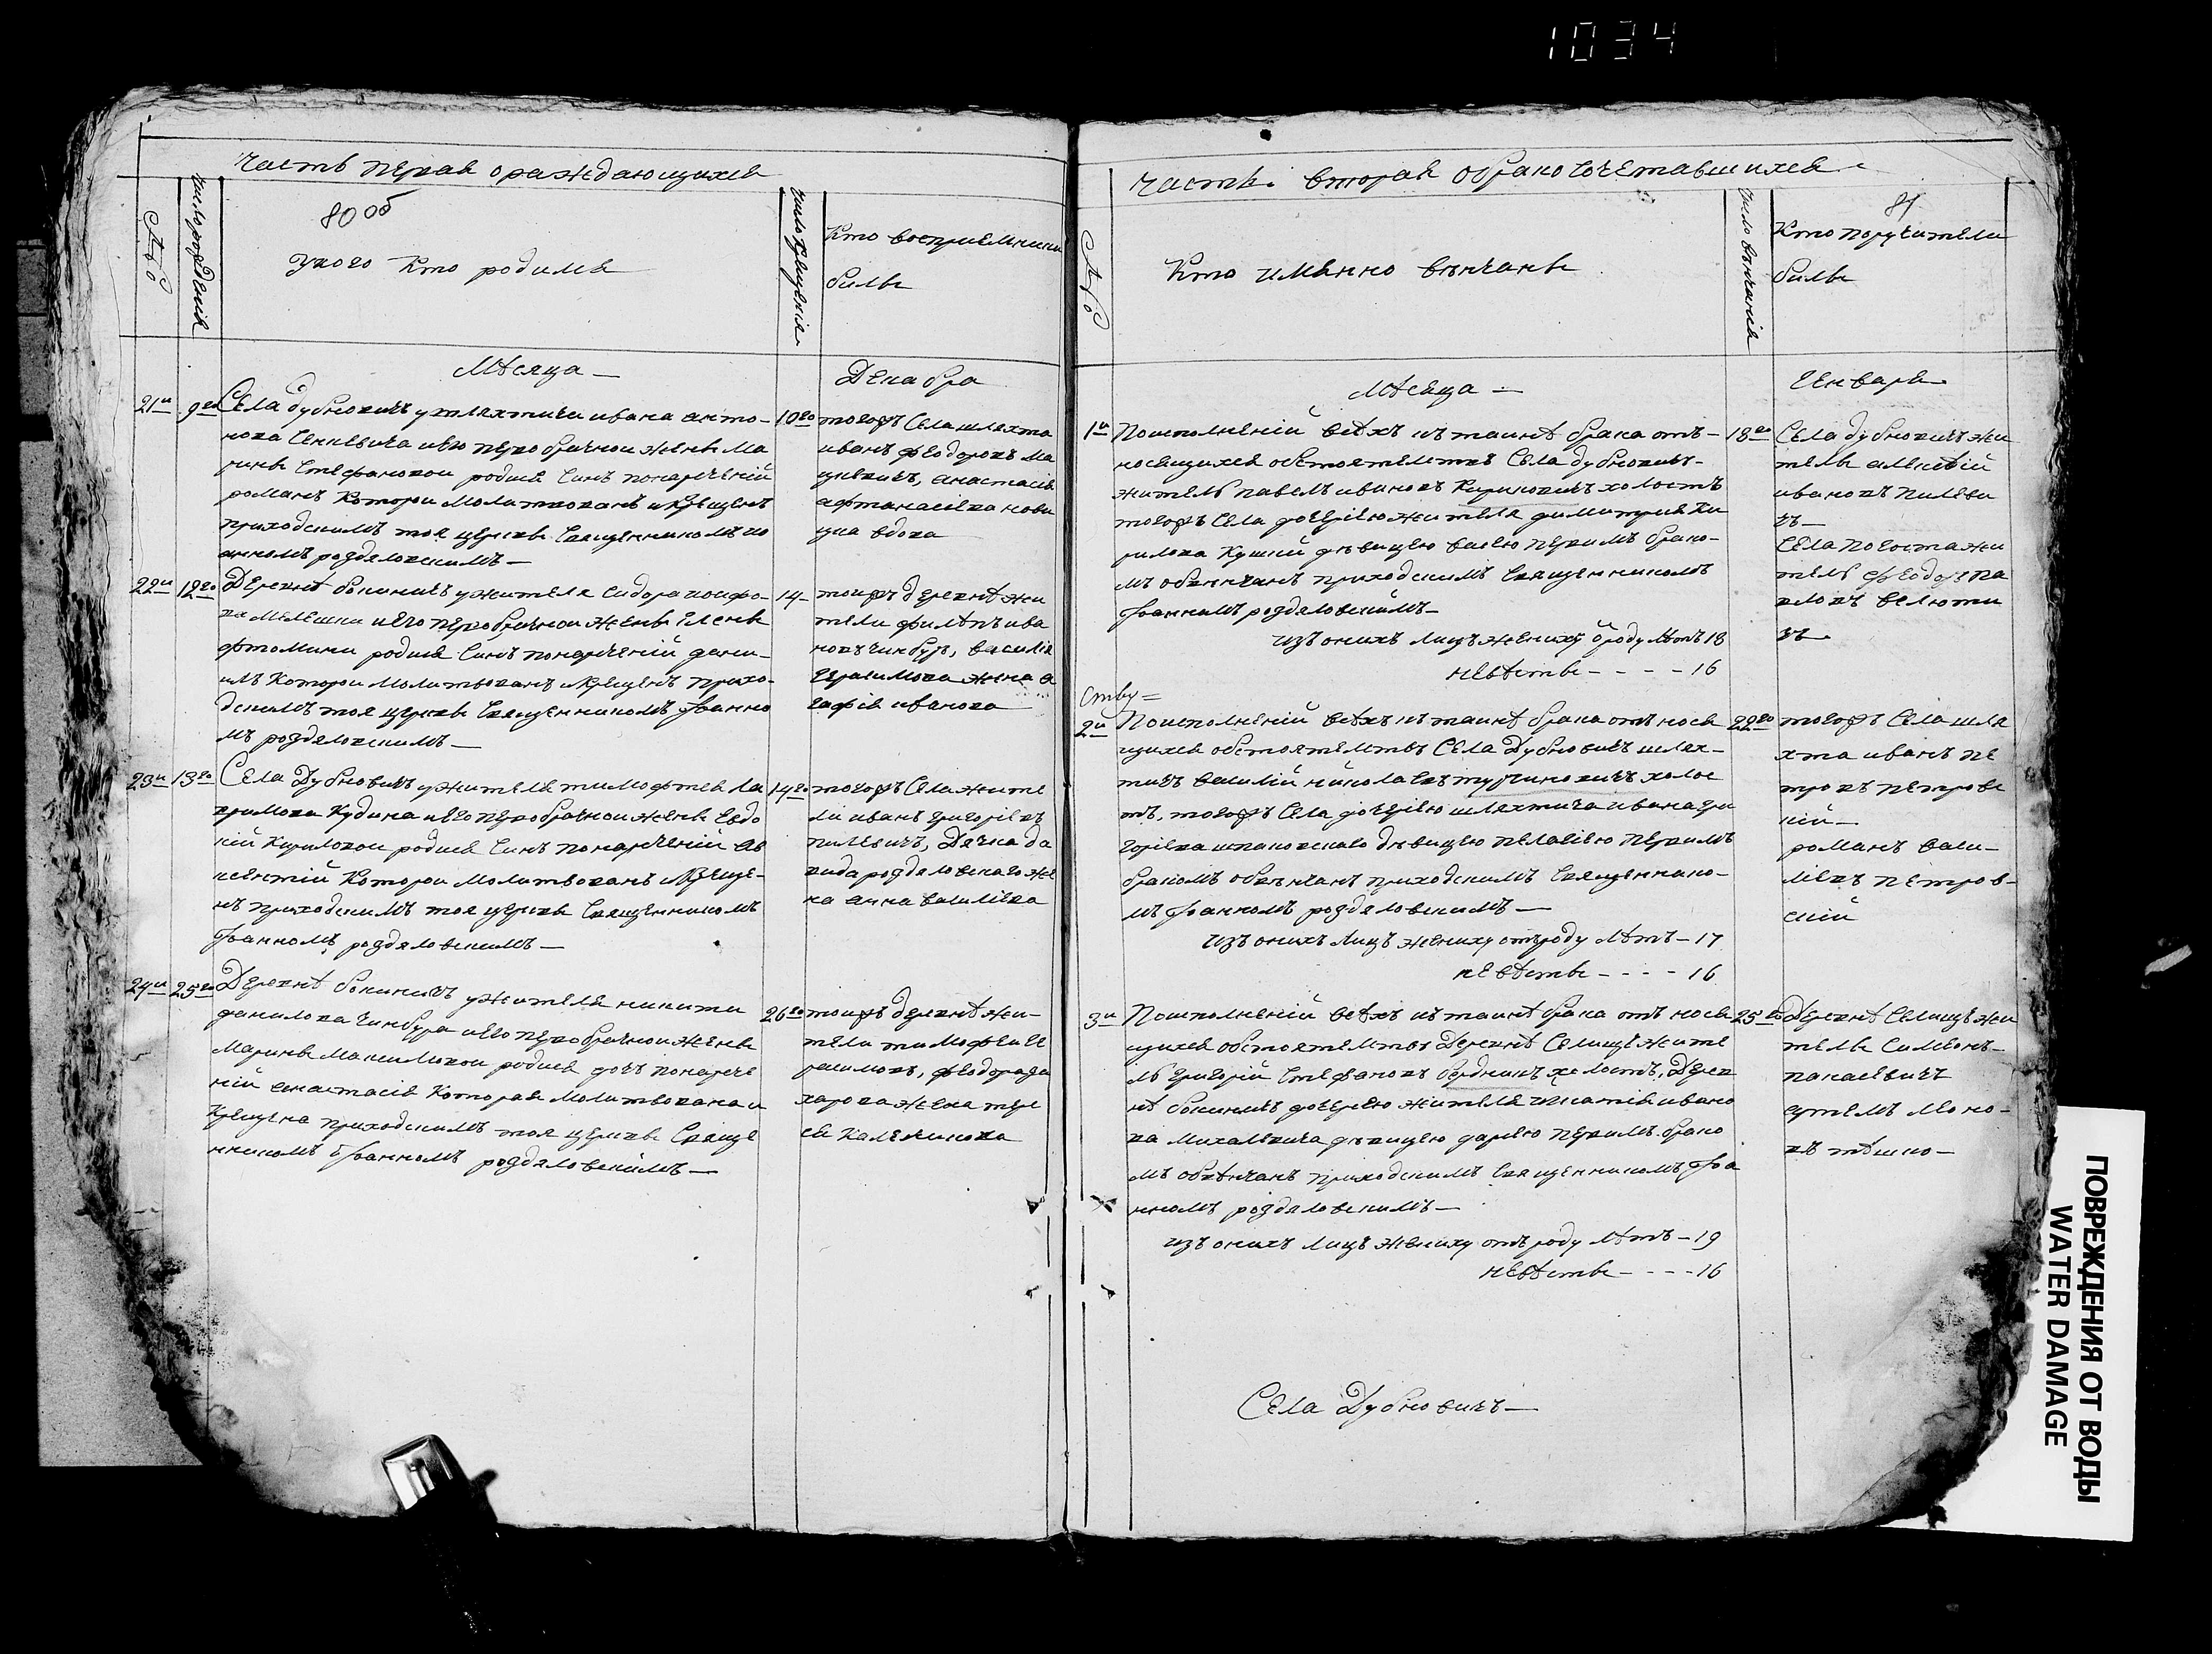 1034
Часть первая о раждающихся
80 об
№
число рождения
У кого кто родился
число крещения
Кто восприемники
были
Месяца —
Декабра
21й 9го Села дубновичъ у шляхтича ивана анто-
нова Сенкевича и его первобрачной жены Ма
рины Стефановой родися Сынъ нонареченій
романъ Которои Молитвованъ и Крещенъ
приходскимъ тоя церкви Священникомъ ио
анномъ роздяловскимъ —
10го тогожъ Села шляхта
иванъ феодоровъ ма
цкевичъ, анастасія
афтанасіева нови
цка вдова
22й 12го Деревнѣ бокиничъ у жителя Сидора
ва Мелешки и его первобрачной жены Елены
фтомины родися Сынъ понареченій дани-
илъ Которои Молитвованъ и Крещенъ прихо-
дскимъ тоя церкви Священникомъ Іоанно
мъ роздяловскимъ —
14 — тоижъ деревнѣ жи
тели филѣпъ ива
новъ чинбуръ, василія
Герасимова жена а
гафія иванова
23й 13го Села Дубновичъ у жителя тимофтея Ла
вримова Кудина и его первобрачной жены Евдо
кій Кириловой родися Сынъ понареченій ав
ксентій Которои Молитвованъ и Креще-
нъ приходскимъ тоя церкви Священникомъ
Іоанномъ роздяловскимъ —
14го тогожъ Села жите
ли иванъ григоріевъ
пилевичъ, Дячка да
вида роздяловскаго же
на анна василіева
24й 25го Деревнѣ бокиничъ у жителя никити
данилова чинбура и его первобрачной жены
Марины Максимовой родися дочъ понарече
ній анастасія Которая Молитвована и
Крещена приходскимъ тоя церкви Свяще
нникомъ Іоанномъ роздяловскимъ —
26го тоижъ деревнѣ жи-
тели тимофей Ге
расимовъ, феодора за
харова жена тере
са Калечикова
Часть вторая о бракосочетавшихся
81
№
Кто именно венчанъ
число венчанія
Кто поручители
были
Месяца —
Генваря
1й Поисполненій всѣхъ къ таинѣ брака отъ-
носящихся обстоятелствъ Села дубновичъ-
житель павелъ ивановъ Кириковичъ холостъ
тогожъ Села дочерію жителя димитрія Ки
рилова Кушнй дѣвицею васею первимъ брако-
мъ обвѣнчанъ приходскимъ Священникомъ
Іоанномъ роздяловскимъ —
изъ онихъ лицъ жениху ѿ роду лѣтъ 18
невѣсты - - - - 16
18го Села дубновичъ жи
тели алексѣй
ивановъ пилеви
чъ —
Села погоста жи
тель феодоръ па
вловъ велюти
чъ —
ству =
2й Поисполненій всѣхъ къ таинѣ брака отъ нося
щихся обстоятелствъ Села Дубновичъ шлях-
тичъ василій николаевъ турчиновичъ холос
тъ, тогожъ Села дочерію шляхтича ивана гри
горіева шпаковскаго дѣвицею пелагіею первимъ
бракомъ обвѣнчанъ приходскимъ Священнико-
мъ Іоанномъ роздяловскимъ —
изъ онихъ лицъ жениху отъ роду лѣтъ — 17
невѣсты - - - - 16
22го тогожъ Села шля
хта иванъ пе
тровъ петровс
кій —
романъ васи-
лѣвъ петров-
скій
3й Поисполненій всѣхъ къ таинѣ брака отъ нося
щихся обстоятелствъ Деревнѣ Селищъ жите
ль григорій Стефановъ бердникъ холостъ, Дерев
нѣ бокиничъ дочерею жителя игнатія ивано
ва михалевича дѣвицею дарьею первимъ брако
мъ обвѣнчанъ приходскимъ Священникомъ Іоа
нномъ роздяловскимъ —
изъ онихъ лицъ жениху отъ роду лѣтъ — 19
невѣсты - - - - 16
25го Деревнѣ Селищъ жи
тели Симеонъ-
панасевичъ
артемъ леоно-
въ тѣшко —
Села Дубновичъ —
ПОВРЕЖДЕНИЯ ОТ ВОДЫ
WATER DAMAGE